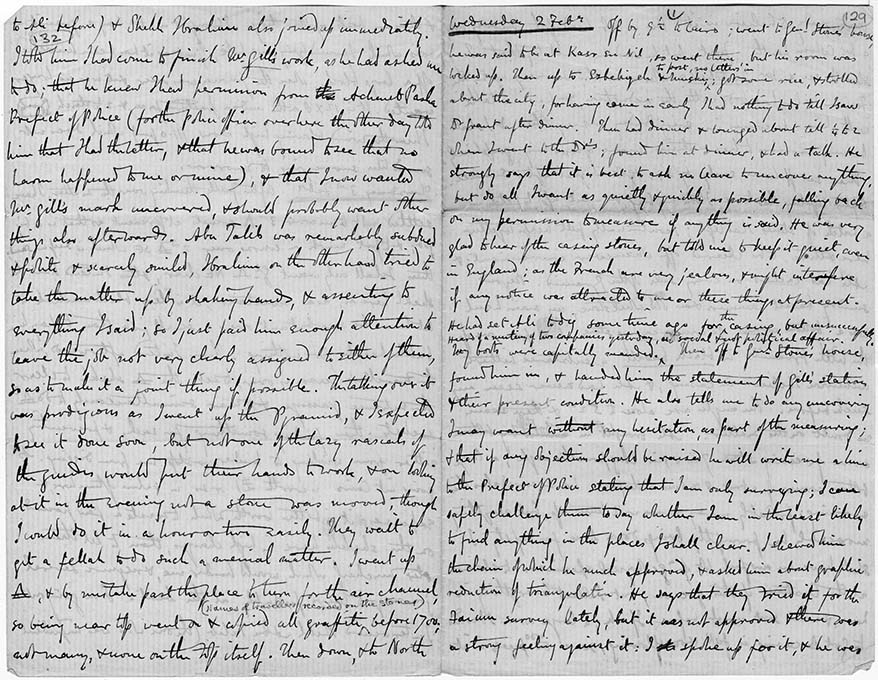 to Ali before) & Shekh Ibrahim also joined up immediately.
132
I told him I had come to finish Mr Gill's work, as he had asked me
to do, that he knew I had permission from the Achmet Pasha
Prefect of Police (for the Police officer over here the other day told
him that I had the letter, & that he was bound to see that no
harm happened to me or mine), & that I now wanted
Mr Gill's mark uncovered, & should probably want other
things also afterwards. Abu Talib was remarkably subdued
& polite & scarcely smiled, Ibrahim on the other hand tried to
take the matter up by shaking hands, & assenting to
everything I said; so I just paid him enough attention to
leave the job not very clearly assigned to either of them,
so as to make it a joint thing if possible. The talking over it
was prodigious as I went up the Pyramid, & I expected
to see it done soon, but not one of the lazy rascals of
the guides would put their hands to work, & on looking
at it in the evening not a stone was moved, though
I would do it in a hour or two easily. They wait to
get a fellah to do such a menial matter. I went up
, & by mistake past the place to turn for the air channel,
(Names of travellers recorded on the stones)
so being near top went on & copied all graffiti before 1700,
not many, & none on the top itself. Then down, & to North
129
Wednesday 2 Feby Off by to Cairo; went to Genl Stone's house,
he was said to be at Kasr en Nil, so went there, but his room was
to post, no letters in
locked up. Then up to Esbekiyeh & Muski; got some rice, & strolled
about the city, for having come in early I had nothing to do till I saw
Dr Grant after dinner. Then had dinner & lounged about till
when I went to the Dr's; found him at dinner, & had a talk. He
strongly says that it is best to ask no leave to uncover anything,
but do all I want as quietly & quickly as possible, falling back
on my permission to measure if anything is said. He was very
glad to hear of the casing stones, but told me to keep it quiet, even
in England; as the French are very jealous, & might interfere
if any notice was attracted to me or these things at present.
He had set Ali to dig some time ago for the casing, but unsuccessfully.
Heard of a mutiny of two companies yesterday, a social & not political affair.
My boots were capitally mended. Then off to Genl Stone's house,
found him in, & handed him the statement of Gill's stations
& their present condition. He also tells me to do any uncovering
I may want without any hesitation, as part of the measuring;
& that if any objection should be raised he will write me a line
to the Prefect of Police stating that I am only surveying; I can
safely challenge them to say whether I am in the least likely
to find anything in the places I shall clear. I shewed him
the chain, of which he much approved, & asked him about graphic
reduction of triangulation. He says that they tried it for the
Faium survey lately, but it was not approved & there was
a strong feeling against it: I spoke up for it, & he was